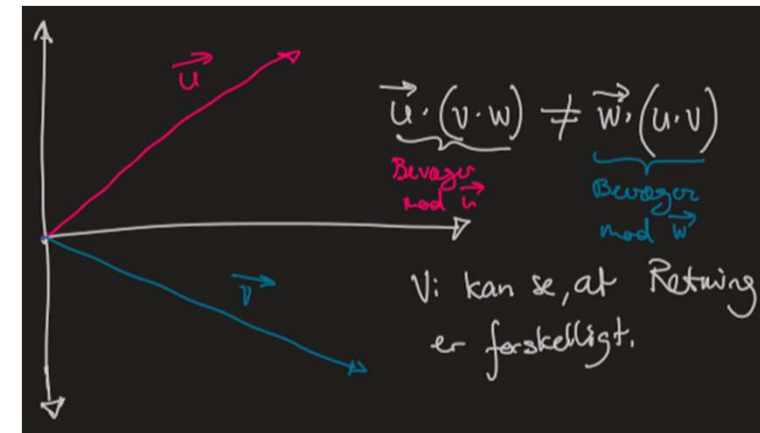 u
u · (v · w) ≠ w · (u · v)
Bevæger
mod u
Bevæger
mod w
v
Vi kan se, at Retning
er forskelligt.